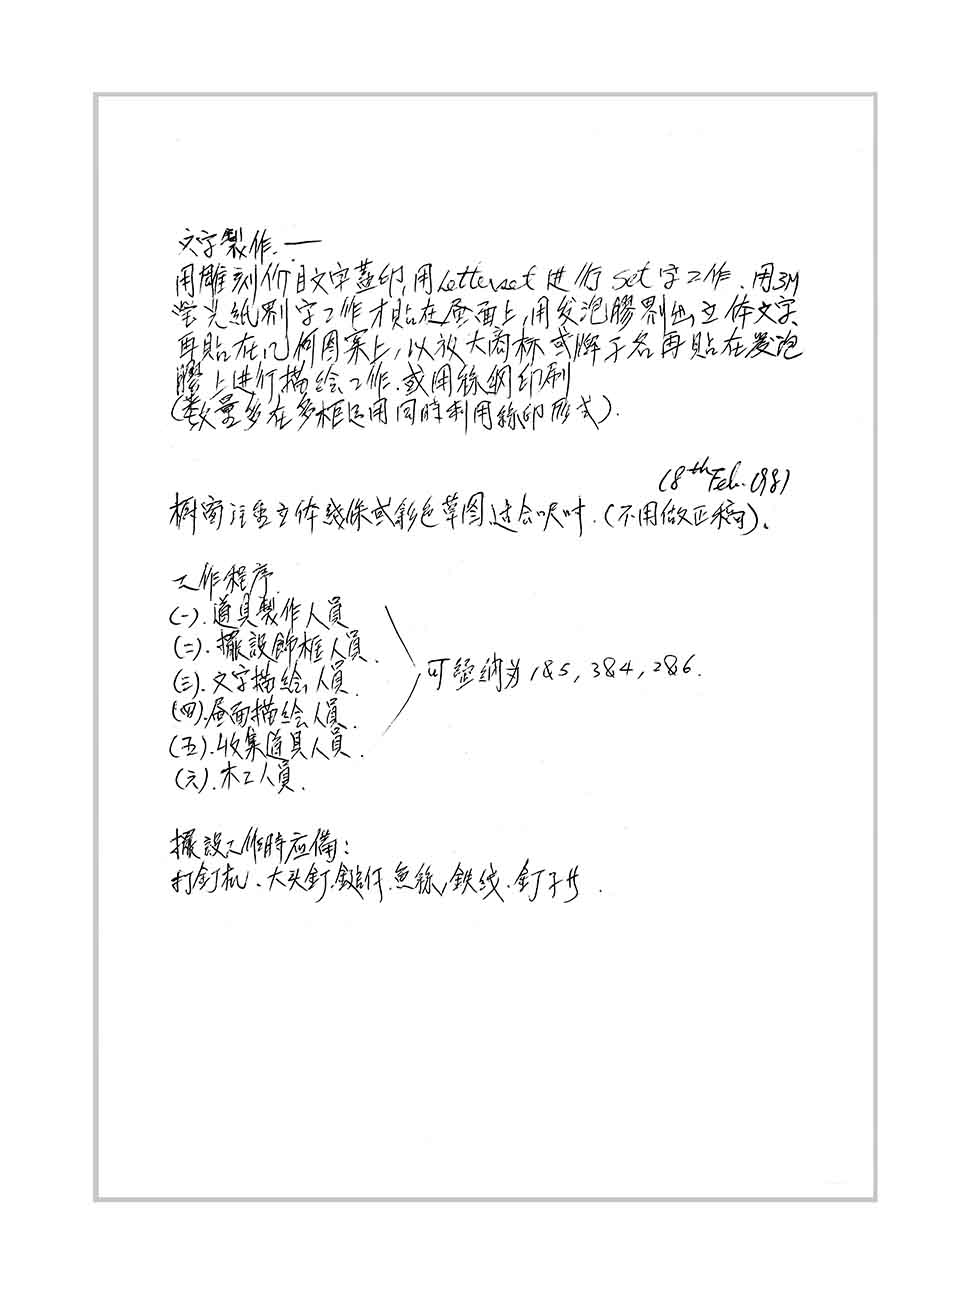 文字製作.—
用雕刻价目文字蓋印,用Letterset 进行 Set 字工作.用3M
莹光紙剔字工作才貼在画面上,用发泡膠剔出立体文字
再貼在几何图案上,以放大商标或牌子名再貼在发泡
膠上进行描绘工作.或用絲網印刷
(数量多在多框运用同時利用絲印形式).
(8th Feb. 1981)
橱窗注重立体线条或彩色草图适合呎吋.(不用做正稿).
工作程序
(一).道具製作人員
(二).擺設飾框人員.
(三).文字描绘人員.
(四).画面描绘人員.
(五).收集道具人員.
(六).木工人員.
可归纳为 1&5, 3&4, 2&6.
擺設工作時应備:
打釘机.大头釘.鎚仔.魚絲,鉄线.釘子等.